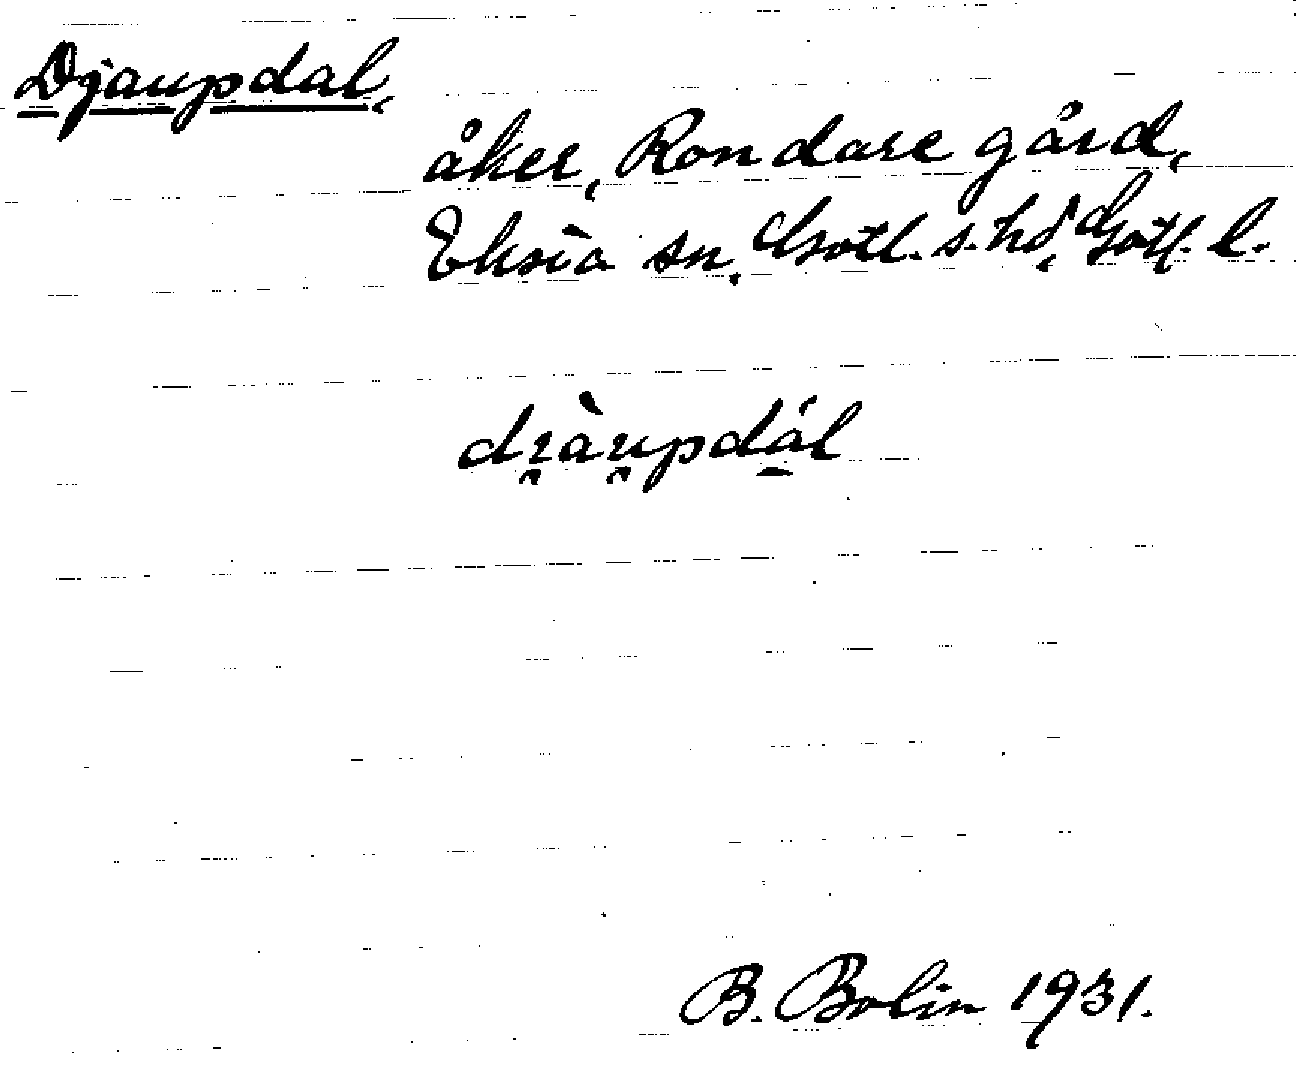 Djaupdal,
åker, Rondare gård,
Eksta sn, Gotl. s. hd, Gotl. l.
B. Bolin 1931.